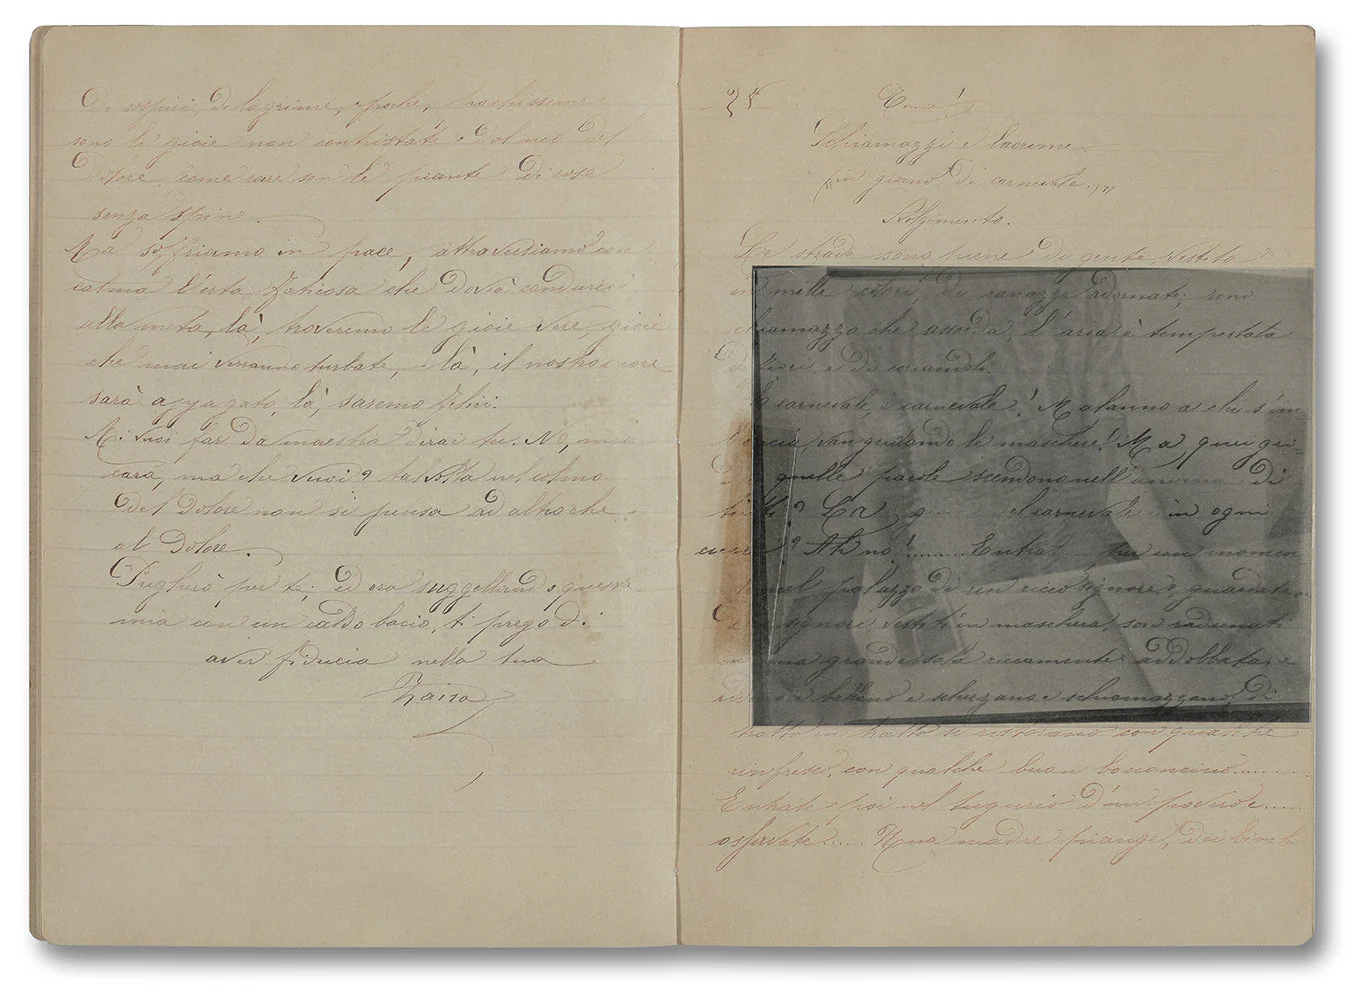 Di sospiri, di lagrime, e poche, pochissime
sono le gioie non contristate dal neo del
Dolore, come rare son le piante di rose
senza spine.
Ma soffriamo in pace, attraversiamo con
calma l'erta faticosa che dovrà condurci
alla meta, là, troveremo le gioie vere, gioie
che mai verranno turbate, là, il nostro cuore
sarà appagato, là, saremo felici.
Mi vuoi far da maestra? dirai tu. No, mia
cara, ma che vuoi? talvolta nel colmo
del dolore non si pensa ad altro che
al Dolore.
Pregherò per te; ed ora suggellando questa
mia con un caldo bacio, ti prego di
aver fiducia nella tua
Zaira
25 Tema
Schiamazzi e lacrime
"(in giorno di carnevale.)"
Svolgimento.
Le strade sono piene di gente vestita
in mille colori, di ragazze adornate; uno
schiamazzo che assorda, l'aria è tempestata
di fiori, e di coriandoli.
È carnevale, è carnevale! Malanno a chi s'im
broncia, van gridando le maschere! Ma, quei gri
quelle parole scendono nell'animo di
tutti? Ed il carnevale è in ogni
cuore? Ah no!...... Entrat per un momen
nel palazzo di un ricco signore, e guardate
signori vestiti in maschera, son radunati
una grande sala riccamente addobbata; e
ridono e ballano e scherzano e schiamazzano, di
tratto in tratto si ristorano con qualche
rinfresco, con qualche buon bocconcino......
Entrate poi nel tugurio d'un povero e....
osservate.... Una madre piange, dei bimb